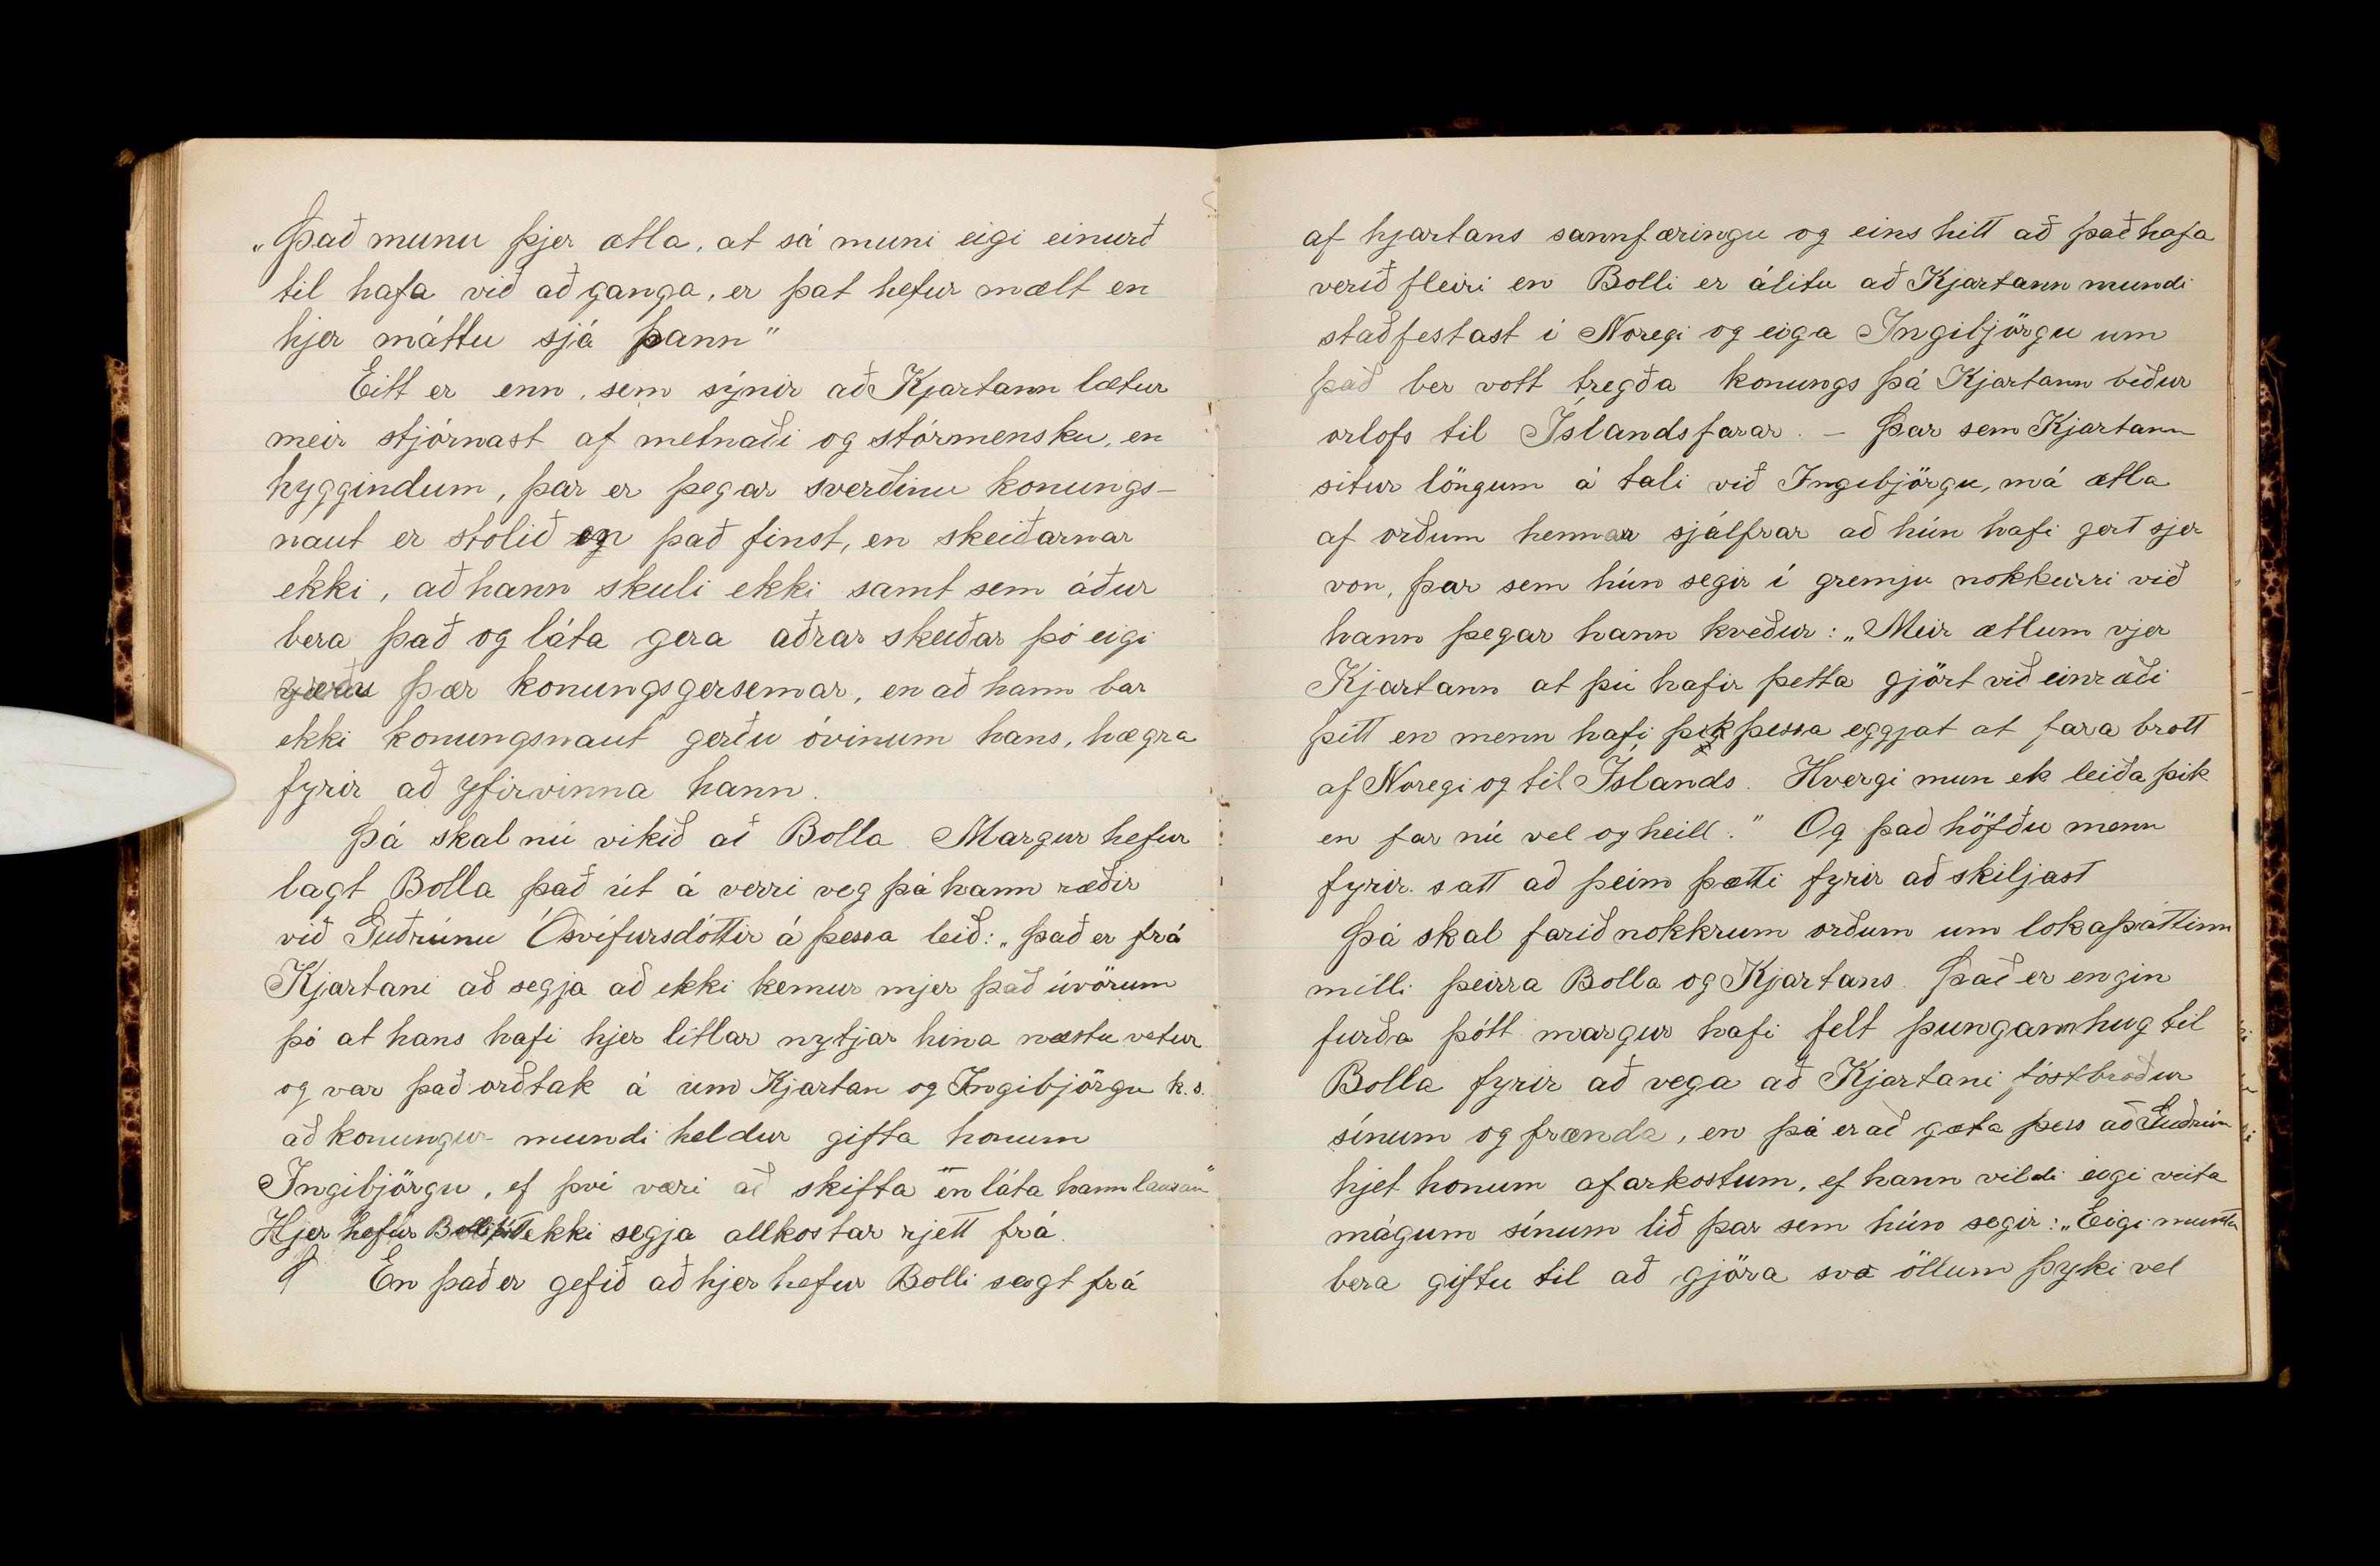 „Það munu þjer ætla, at sá muni eigi einurð
til hafa við að ganga, er þat hefur mælt en
hjer máttu sjá þann"
Eitt er enn, sem sýnir að Kjartann lætur
meir stjórnast af metnaði og stórmensku, en
hyggindum, þar er þegar sverðinu konungs-
naut er stolið og það finst, en skeiðarnar
ekki, að hann skuli ekki samt sem áður
bera það og láta gera aðrar skeiðar þó eigi
yrðu þær konungsgersemar, en að hann bar
ekki konungsnaut gerðu óvinum hans, hægra
fyrir að yfirvinna hann.
Þá skal nú vikið að Bolla. Margur hefur
lagt Bolla það út á verri veg þá hann ræðir
við Guðrúnu Ósvífursdóttir á þessa leið: „Það er frá
Kjartani að segja að ekki kemur mjer það úvörum
þó at hans hafi hjer litlar nytjar hina næstu vetur
og var það orðtak á um Kjartan og Ingibjörgu k.s.
að konungur mundi heldur gifta honum
Ingibjörgu, ef því væri að skifta en láta hann lausan"
Hjer hefur Bolli ekki segja allkostar rjett frá.
En það er gefið að hjer hefur Bolli sagt frá
af hjartans sannfæringu og eins hitt að það hafa
verið fleiri en Bolli er álitu að Kjartann mundi
staðfestast í Noregi og eiga Ingibjörgu um
það ber vott tregða konungs þá Kjartann biður
orlofs til Íslandsfarar. – Þar sem Kjartann
situr löngum á tali við Ingibjörgu, má ætla
af orðum hennar sjálfrar að hún hafi gert sjer
von, þar sem hún segir í gremju nokkurri við
hann þegar hann kveður: „Meir ætlum vjer
Kjartann at þú hafir þetta gjört við einræði
þitt en menn hafi þik þessa eggjat at fara brott
af Noregi og til Íslands. Hvergi mun ek leiða þik
en far nú vel og heill." Og það höfðu menn
fyrir satt að þeim þætti fyrir að skiljast
Þá skal farið nokkrum orðum um lokaþáttinn
milli þeirra Bolla og Kjartans. Það er engin
furða þótt margur hafi felt þungann hug til
Bolla fyrir að vega að Kjartani fóstbróður
sínum og frænda, en þá er að gæta þess að Guðrún
hjet honum afarkostum, ef hann vildi eigi veita
mágum sínum lið þar sem hún segir: „Eigi muntu
bera giftu til að gjöra svo öllum þyki vel